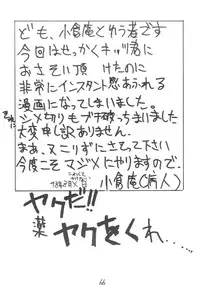 ども、小倉庵とゆう者です
今回はせっかくキッヅ君に
おさそい頂けたのに
非常にインスタント感あふれる
漫画になってしまいました。
シメ切りもブチ破っちまいました
大変申し訳ありません。
まあ、ヌこりずにさせて下さい
今度こそマジメにやりますので、
小倉庵(病人)
ヤクだ!!
薬
ヤクをくれ…
66